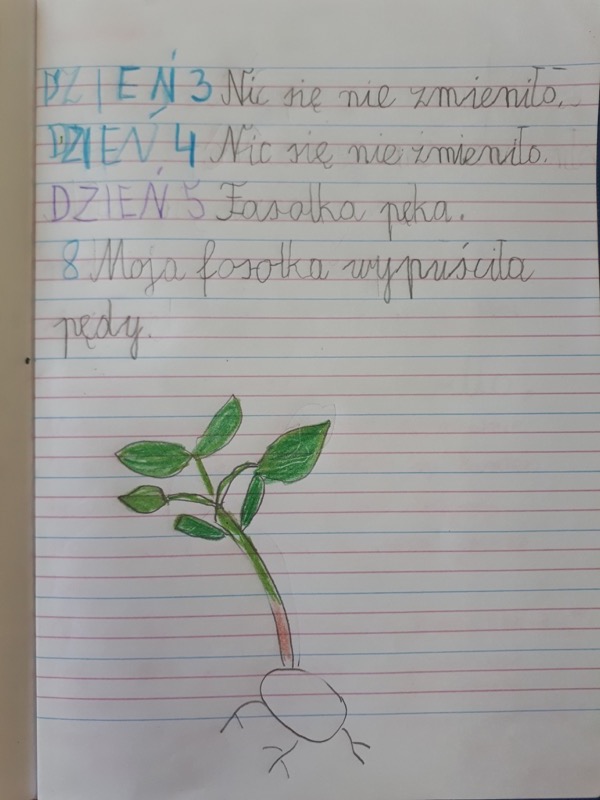 DZIEŃ 3 Nic się nie zmieniło.
DZIEŃ 4 Nic się nie zmieniło.
DZIEŃ 5 Fasolka pęka.
8 Moja fosolka wypuściła
pędy.